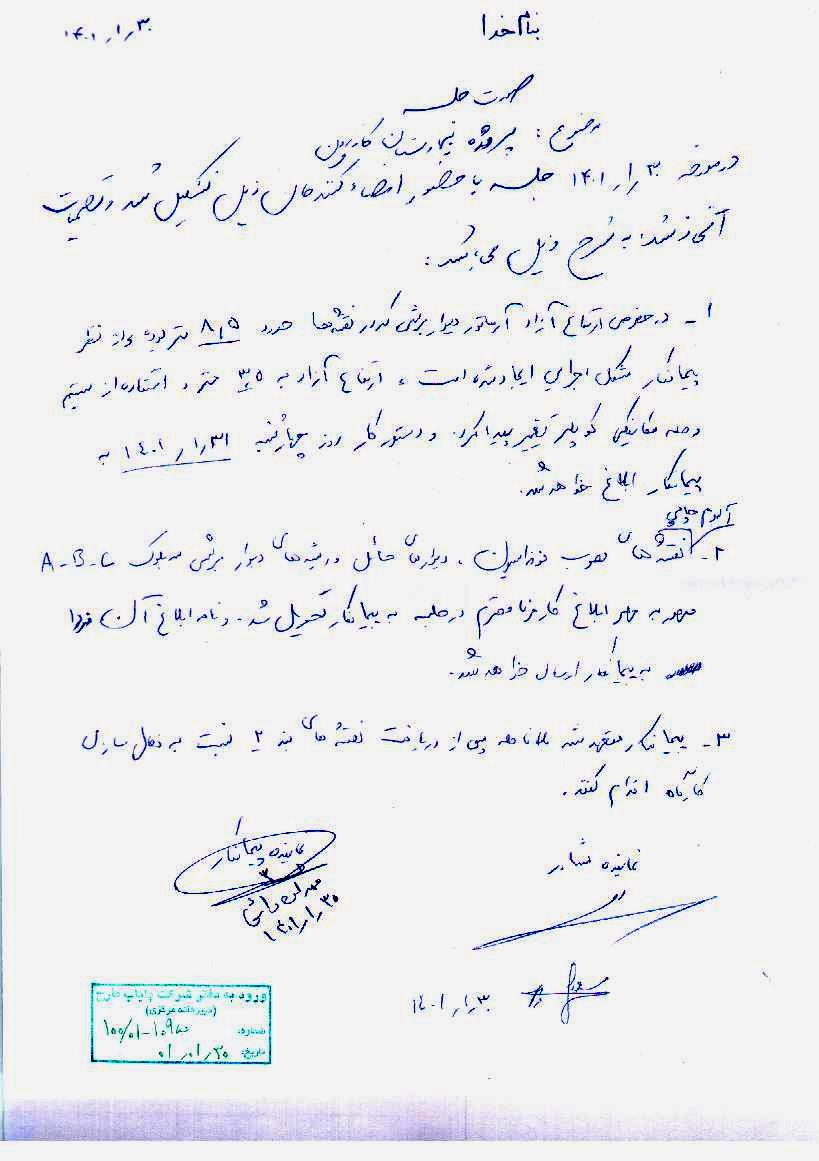 بنام خدا
۱۴۰۱/۱/۳۰
صورت جلسه
موضوع: پروژه بیمارستان کازرون
در مورخه ۱۴۰۱/۱/۳۰ جلسه با حضور امضاء کنندگان ذیل تشکیل شد و تصمیمات
اتخاذ شده به شرح ذیل می‌باشد:
۱- در خصوص ارتفاع آزاد آرماتور دیوار برشی که در نقشه‌ها حدود ۸٫۵ متر بوده و از نظر
پیمانکار مشکل اجرایی ایجاد شده است، ارتفاع آزاد به ۳٫۵ متر و استفاده از سیستم
وصله مکانیکی کوپلر تغییر پیدا کرد. و دستور کار روز چهارشنبه ۱۴۰۱/۱/۳۱ به
پیمانکار ابلاغ خواهد شد.
آلبوم چاپی
۲- نقشه‌های مصوب فونداسیون، دیوارهای حائل و ریشه‌های دیوار برشی سه بلوک A-B-C
ممهور به مهر ابلاغ کارفرما محترم در جلسه به پیمانکار تحویل شد. و نامه ابلاغ آن فردا
به پیمانکار ارسال خواهد شد.
۳- پیمانکار متعهد شد بلافاصله پس از دریافت نقشه‌های بند ۲ نسبت به فعال سازی
کارگاه اقدام کند.
نماینده مشاور
نماینده پیمانکار
۱۴۰۱/۱/۳۰
۱۴۰۱/۱/۳۰
ورود به دفتر شرکت پایاب طرح
(دبیرخانه مرکزی)
شماره:
تاریخ: ۰۱/۰۱/۳۰